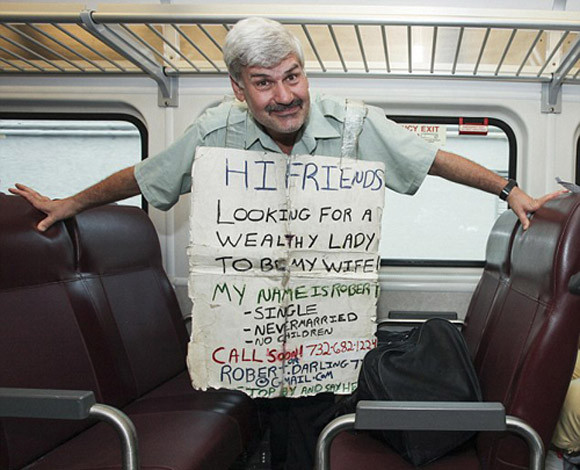 HI FRIENDS
LOOKING FOR A
WEALTHY LADY
TO BE MY WIFE!
MY NAME IS ROBERT
- SINGLE
- NEVER MARRIED
- NO CHILDREN
CALL SOON! 732-682-1224
OR
ROBERT.DARLING
@GMAIL.COM
AND SAY HE
EXIT